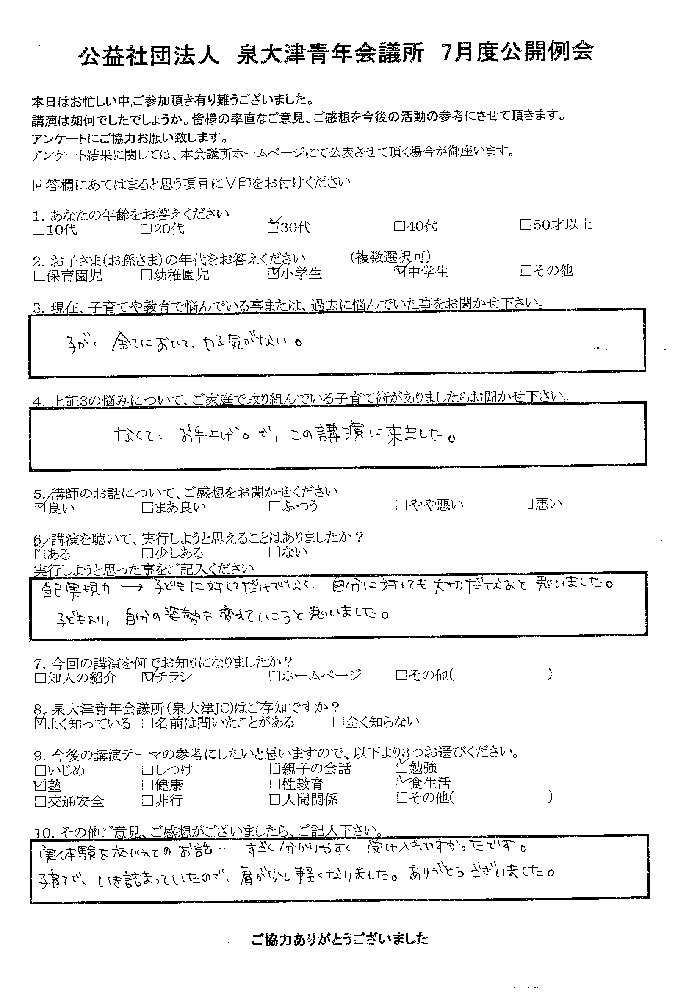 公益社団法人 泉大津青年会議所 7月度公開例会
本日はお忙しい中、ご参加頂き有り難うございました。
講演は如何でしたでしょうか。皆様の率直なご意見、ご感想を今後の活動の参考にさせて頂きます。
アンケートにご協力お願い致します。
アンケート結果に関しては、本会議所ホームページにて公表させて頂く場合が御座います。
回答欄にあてはまると思う項目にV印をお付けください
1. あなたの年齢をお答えください
□10代 □20代 ☑30代 □40代 □50才以上
2. お子さま(お孫さま)の年代をお答えください (複数選択可)
□保育園児 □幼稚園児 ☑小学生 ☑中学生 □その他
3. 現在、子育てや教育で悩んでいる事または、過去に悩んでいた事をお聞かせ下さい。
子が、全てにおいて、やる気がない。
4. 上記3の悩みについて、ご家庭で取り組んでいる子育て術がありましたらお聞かせ下さい。
なくて、お手上げ。で、この講演に来ました。
5. 講師のお話について、ご感想をお聞かせください
☑良い □まあ良い □ふつう □やや悪い □悪い
6. 講演を聴いて、実行しようと思えることはありましたか?
☑ある □少しある □ない
実行しようと思った事をご記入ください
自己実現力 → 子どもに対してだけでなく、自分に対しても大切だなあと思いました。
子どもより、自分の姿勢を変えていこうと思いました。
7. 今回の講演を何でお知りになりましたか?
□知人の紹介 ☑チラシ □ホームページ □その他( )
8. 泉大津青年会議所(泉大津JC)はご存知ですか?
☑よく知っている □名前は聞いたことがある □全く知らない
9. 今後の講演テーマの参考にしたいと思いますので、以下より3つお選びください。
□いじめ □しつけ □親子の会話 ☑勉強
☑塾 □健康 □性教育 ☑食生活
□交通安全 □非行 □人間関係 □その他( )
10. その他ご意見、ご感想がございましたら、ご記入下さい。
実体験を のお話… すごく分かりやすく 受け入れやすかったです。
子育てで、いき詰まっていたので、肩が少し軽くなりました。ありがとうございました。
ご協力ありがとうございました